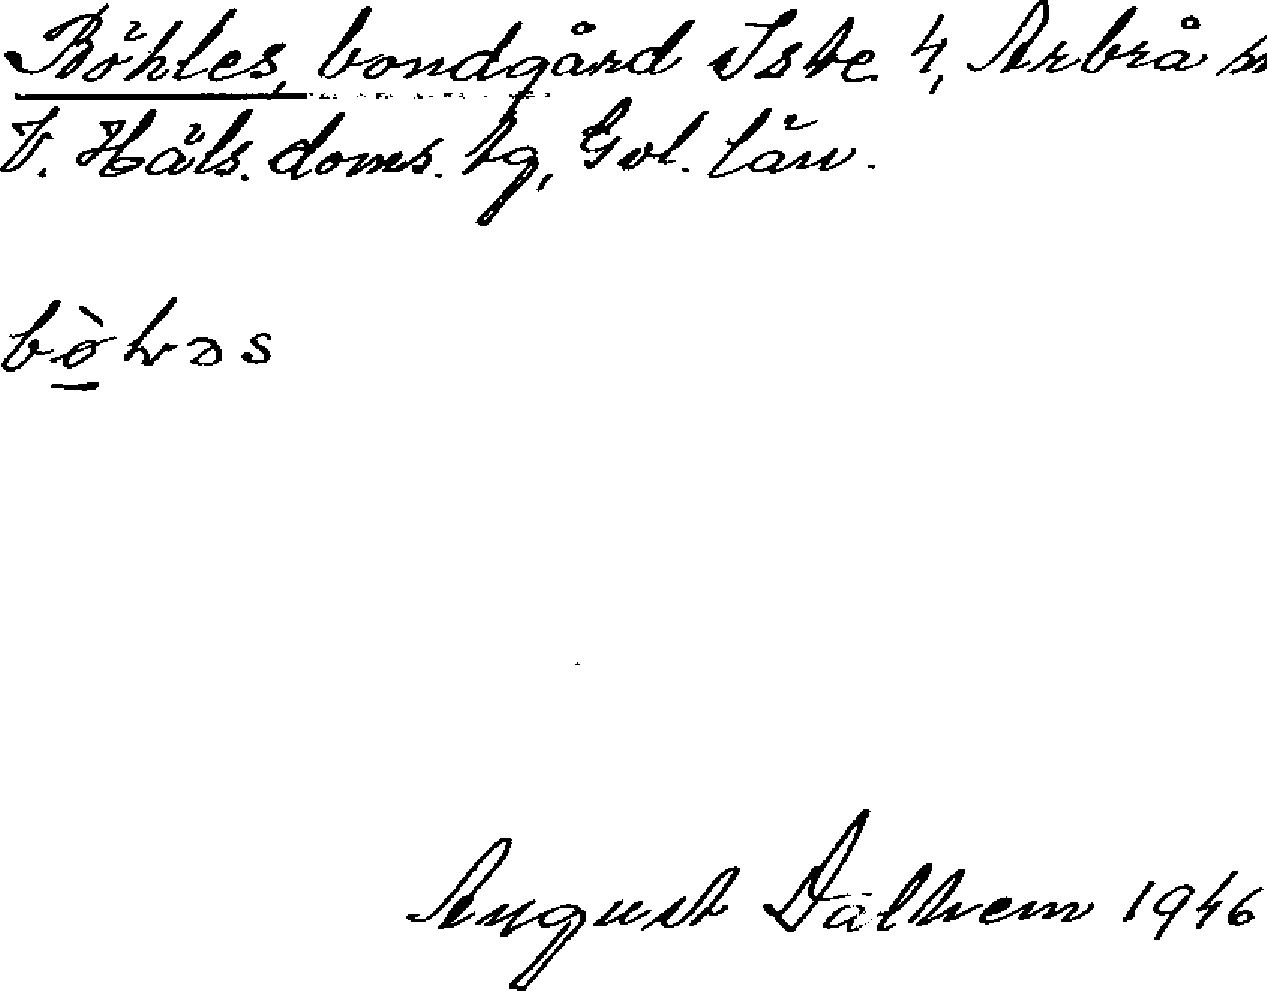 Böhles, bondgård Iste 4, Arbrå
V. Häls. doms. tg, Gvl. län.
August Dälhem 1946